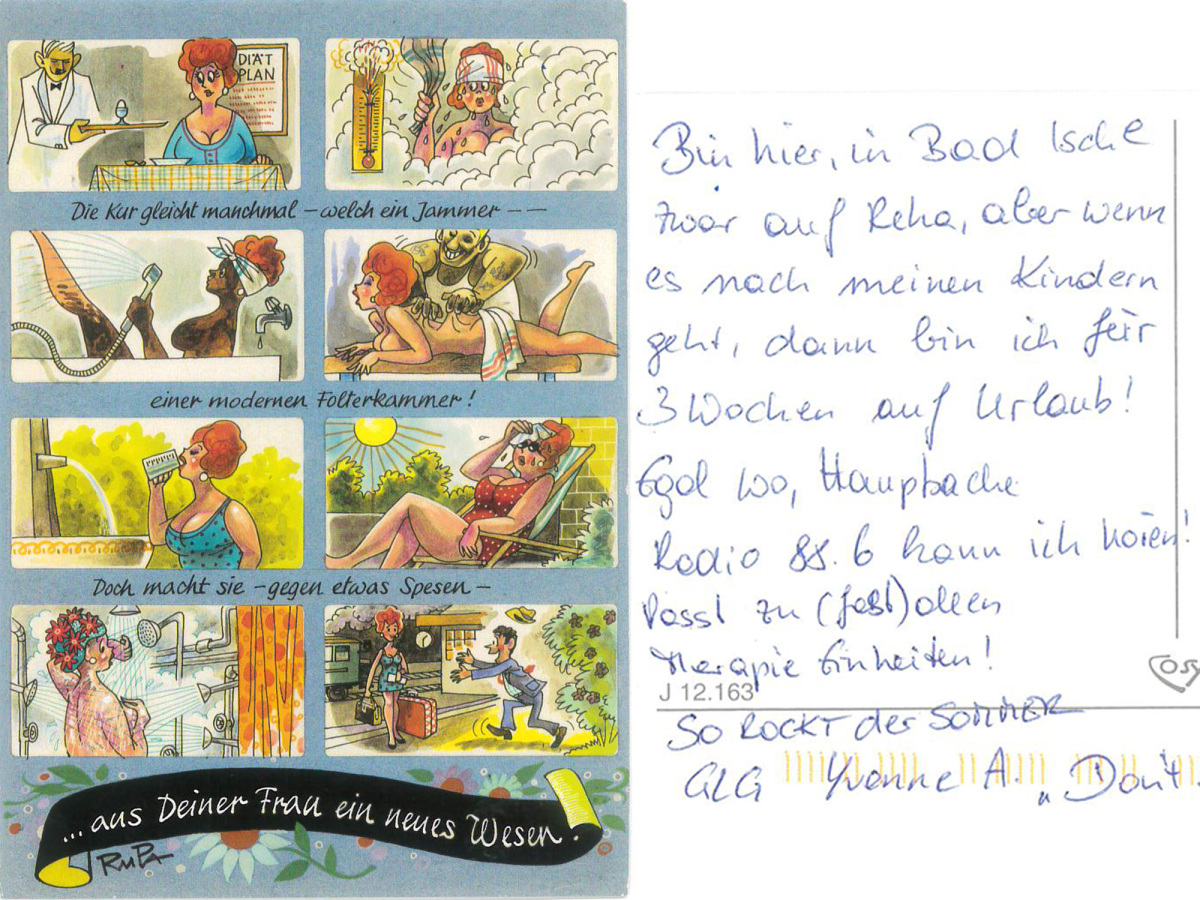 DIÄT
PLAN
Die Kur gleicht manchmal – welch ein Jammer – –
einer modernen Folterkammer!
Doch macht sie – gegen etwas Spesen –
... aus Deiner Frau ein neues Wesen.
RuPa
Bin hier, in Bad Ische
zwar auf Reha, aber wenn
es nach meinen Kindern
geht, dann bin ich für
3 Wochen auf Urlaub!
Egal wo, Haupbache
Radio 88.6 kann ich hören!
Passt zu (fast) allen
Therapie Einheiten!
J 12.163
SO ROCKT der SOMMER
GLG Yvonne A. "Don't